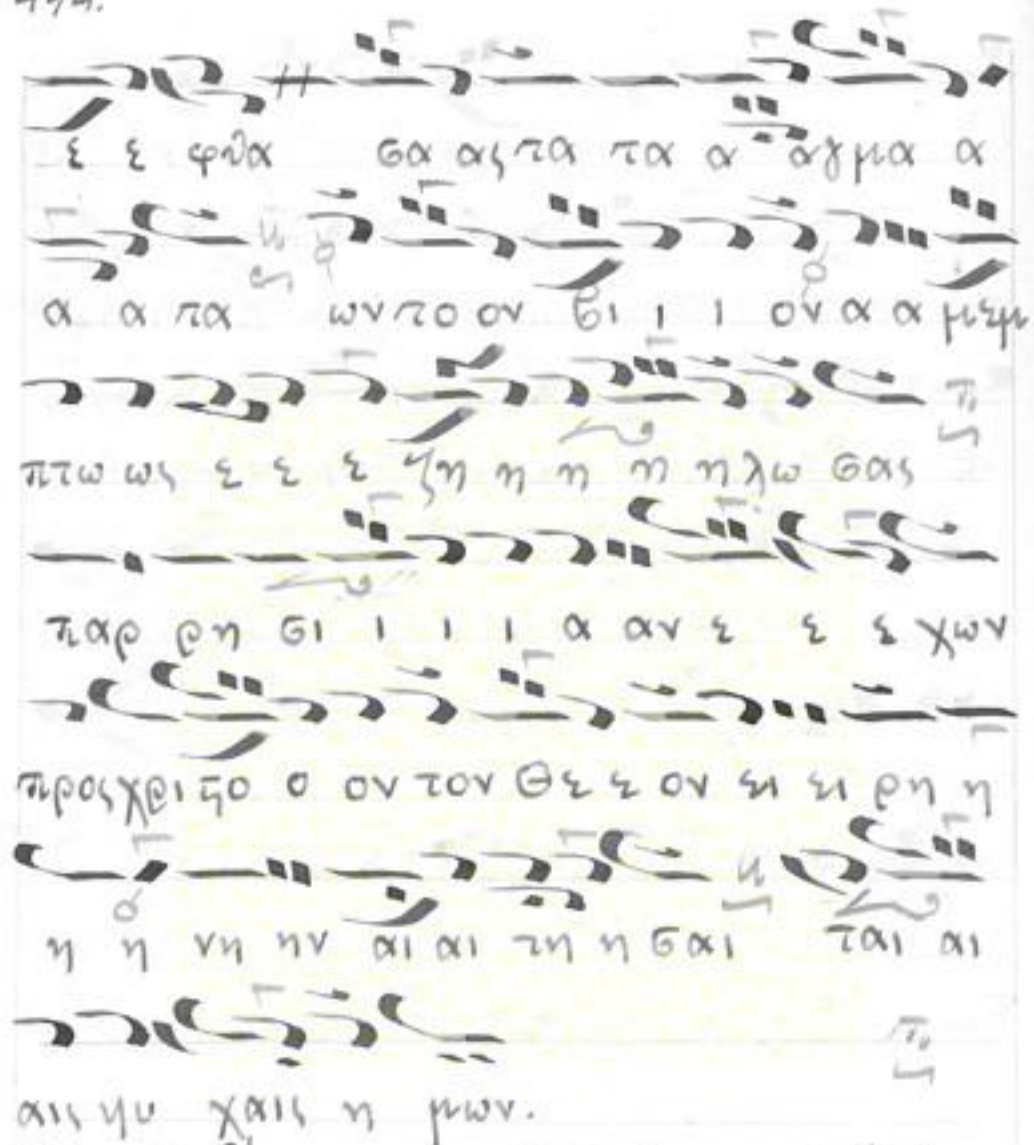 ε ε φθα σα ας τα τα α αγμα α
α α πα ων το ον βι ι ι ον α α μεμ
πτω ως ε ε ε ζη η η η η λω σας
παρ ρη σι ι ι ι α αν ε ε ε χων
προς χρι ϛο ο ον τον Θε ε ον ει ει ρη η
η η νη ην αι αι τη η σαι ται αι
αις ψυ χαις η μων.